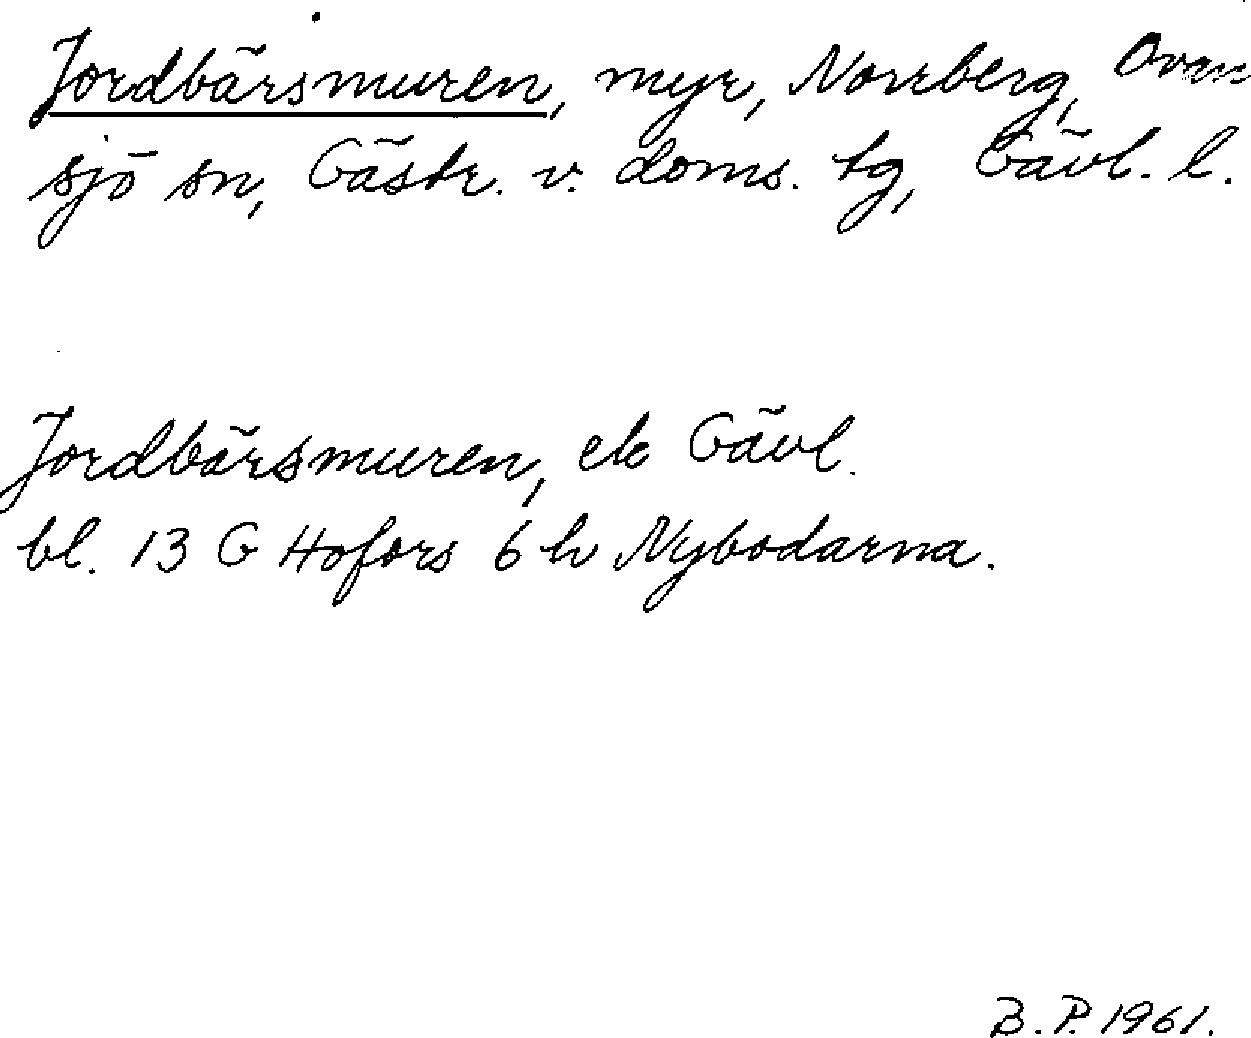 Jordbärsmuren, myr, Norrberg, Ovan
sjö sn, Gästr. v. doms. tg, Gävl. l.
Jordbärsmuren, ek Gävl.
bl. 13 G Hofors 6 h Nybodarna.
B. P. 1961.